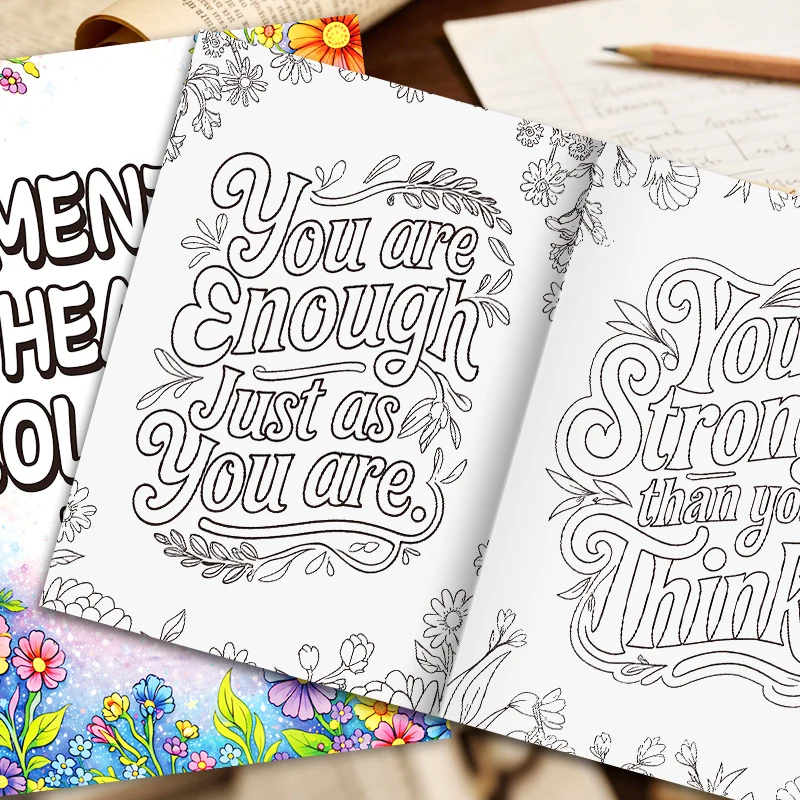 MENT
HEA
OU
You are
Enough
Just as
You are.
You
Strong
than yo
Think